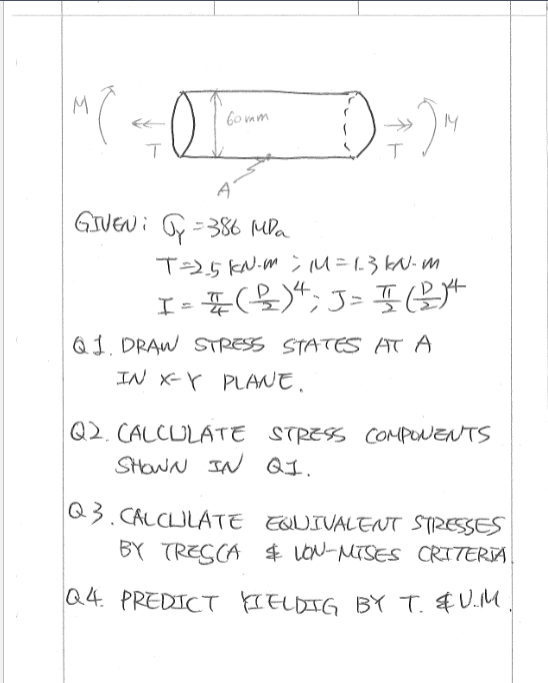 M
60mm
M
T
T
A
GIVEN: σY = 386 MPa
T=2.5 kN·m ; M=1.3 kN·m
I = π/4 (D/2)^4 ; J = π/2 (D/2)^4
Q1. DRAW STRESS STATES AT A
IN X-Y PLANE.
Q2. CALCULATE STRESS COMPONENTS
SHOWN IN Q1.
Q3. CALCULATE EQUIVALENT STRESSES
BY TRESCA & VON-MISES CRITERIA.
Q4. PREDICT YIELDIG BY T. & V.M.